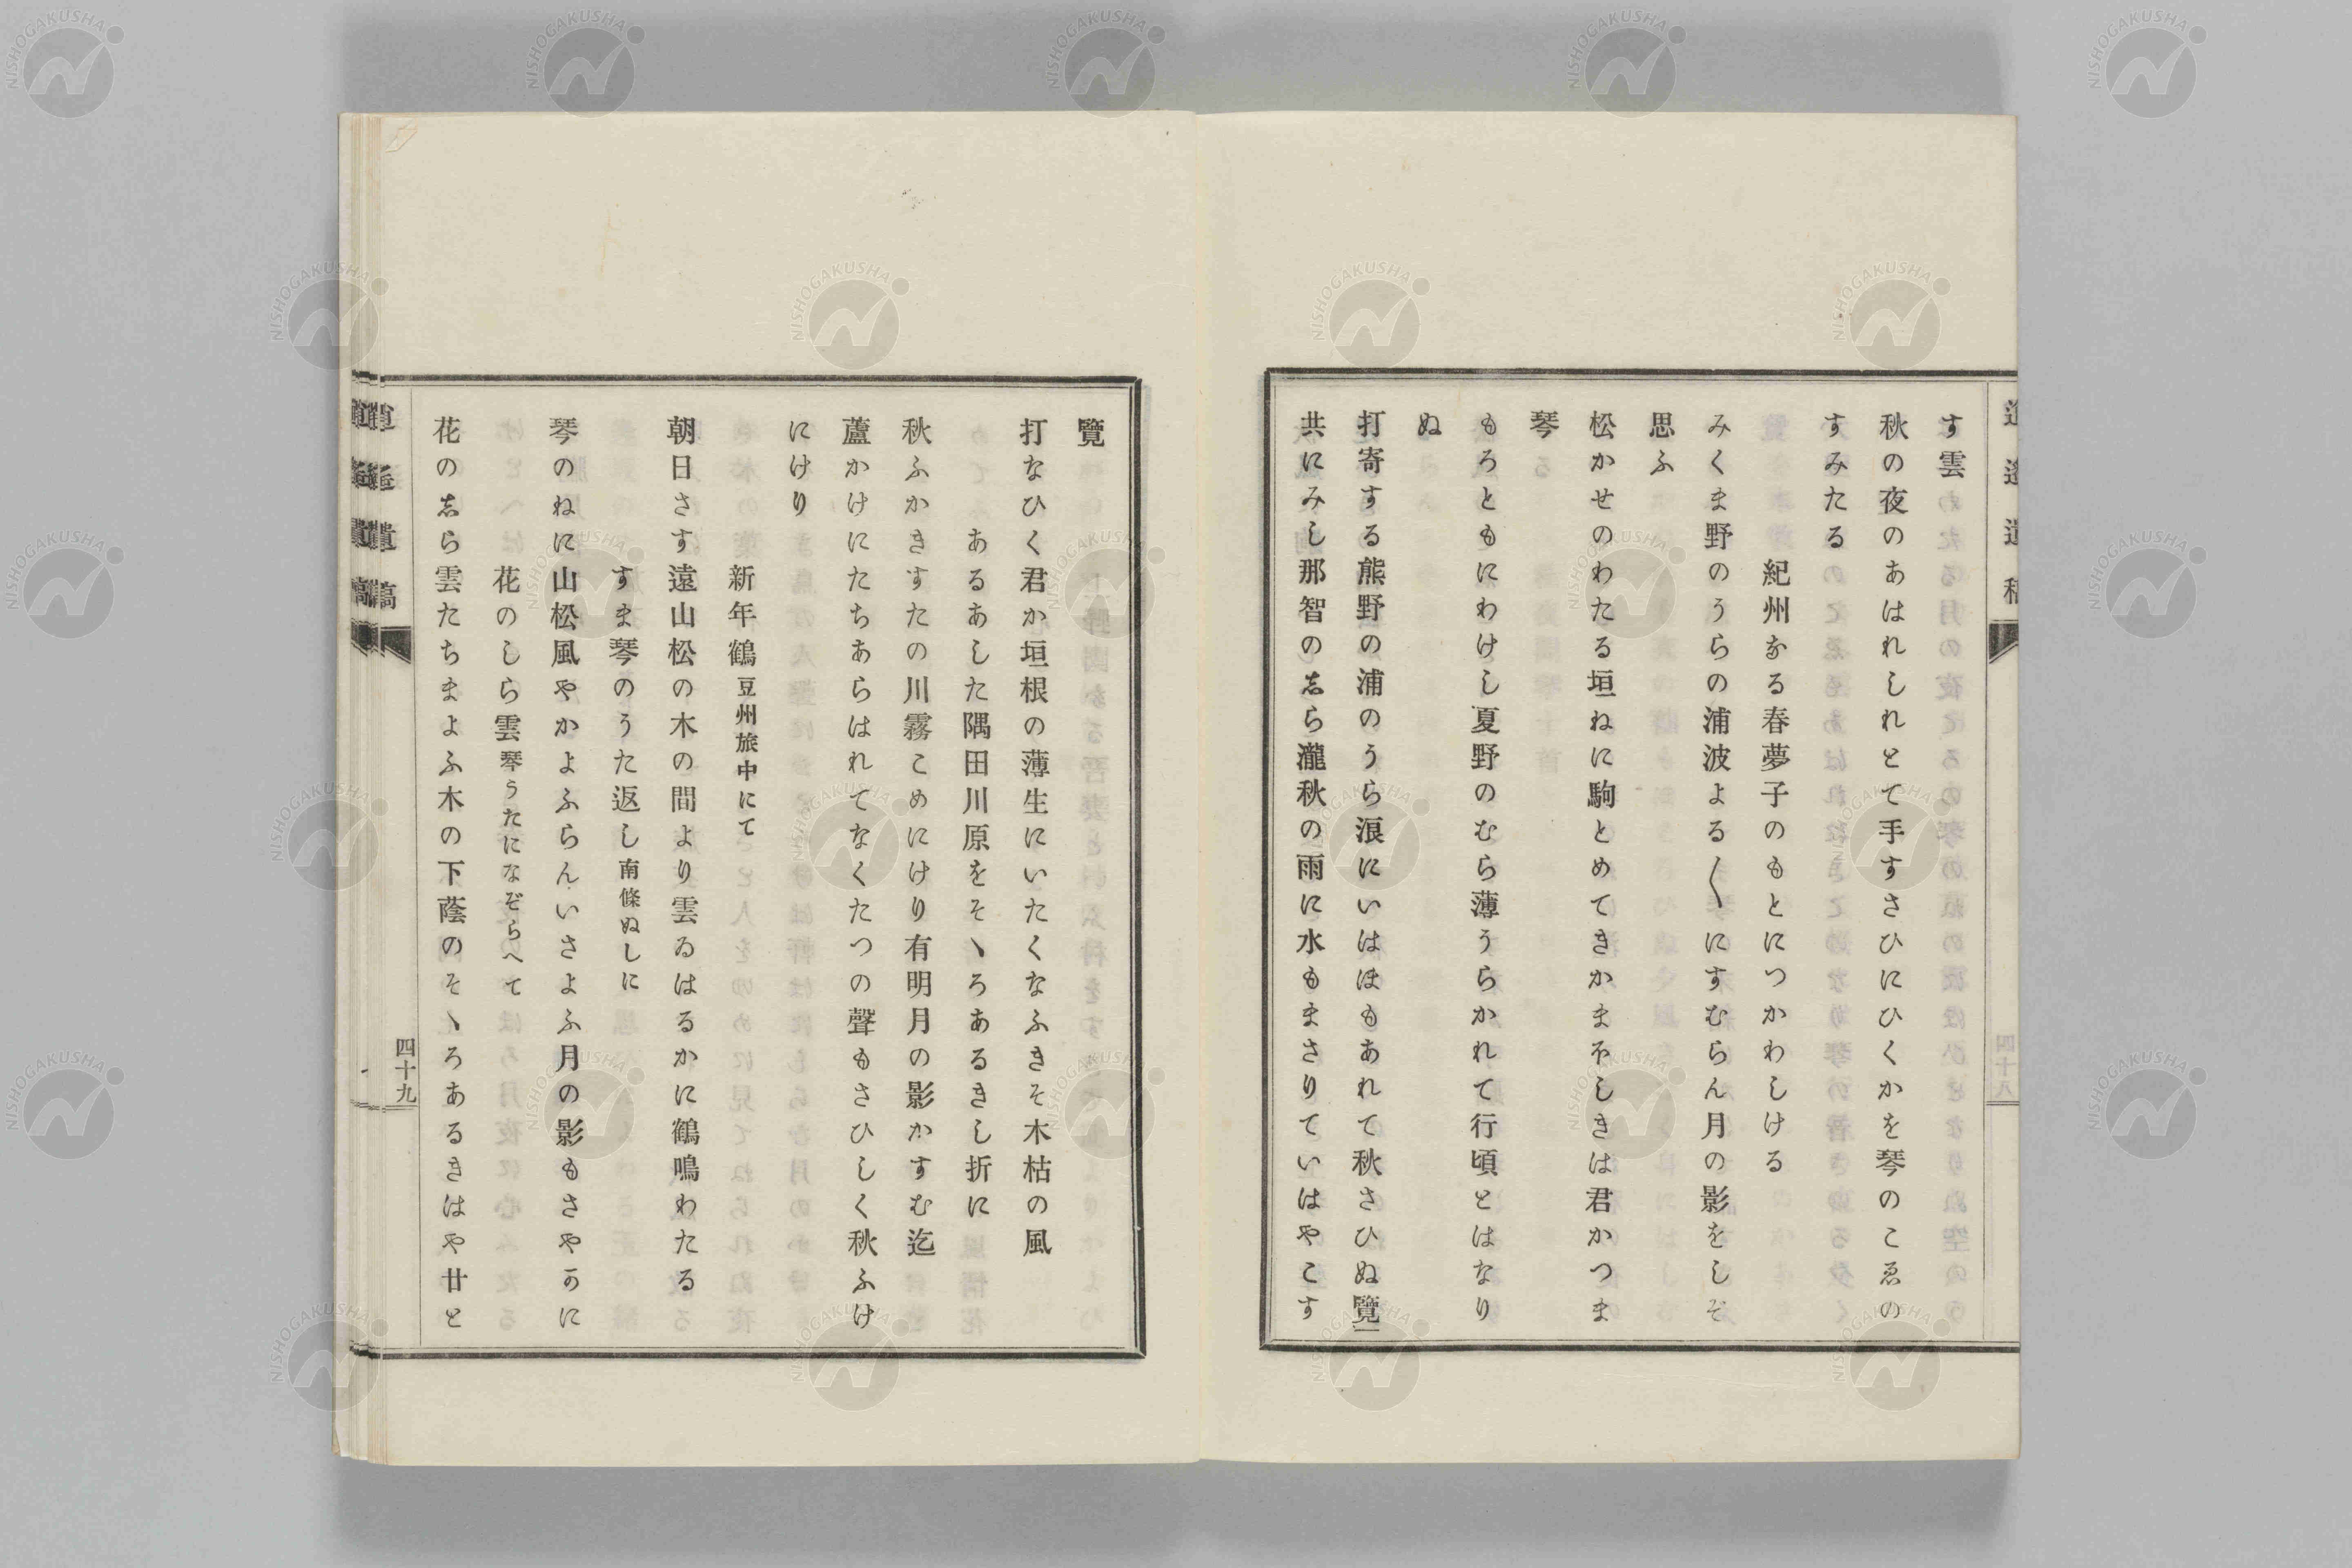 す雲
秋の夜のあはれしれとて手すさひにひくかを琴のこゑの
すみたる
紀州なる春夢子のもとにつかわしける
みくま野のうらの浦波よる〳〵にすむらん月の影をしそ
思ふ
松かせのわたる垣ねに駒とめてきかまほしきは君かつま
琴
もろともにわけし夏野のむら薄うらかれて行頃とはなり
ぬ
打寄する熊野の浦のうら浪にいはほもあれて秋さひぬ覽
共にみし那智のしら瀧秋の雨に水もまさりていはやこす
覽
打なひく君か垣根の薄生にいたくなふきそ木枯の風
あるあした隅田川原をそゝろあるきし折に
秋ふかきすたの川霧こめにけり有明月の影かすむ迄
蘆かけにたちあらはれてなくたつの聲もさひしく秋ふけ
にけり
新年鶴 豆州旅中にて
朝日さす遠山松の木の間より雲ゐはるかに鶴鳴わたる
すま琴のうた返し 南條ぬしに
琴のねに山松風やかよふらんいさよふ月の影もさやかに
花のしら雲 琴うたになぞらへて
花のしら雲たちまよふ木の下蔭のそゝろあるきはや廿と
逍遙遺稿
四十九
NISHOGAKUSHA